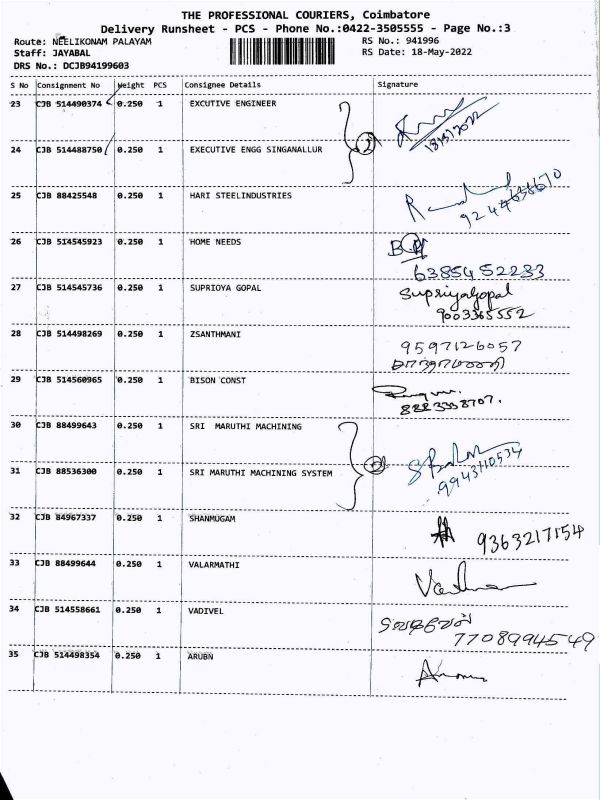 THE PROFESSIONAL COURIERS, Coimbatore
Delivery Runsheet - PCS - Phone No.:0422-3505555 - Page No.:3
Route: NEELIKONAM PALAYAM
RS No.: 941996
Staff: JAYABAL
RS Date: 18-May-2022
DRS No.: DCJB94199603
S No Consignment No Weight PCS Consignee Details Signature
23 CJB 514490374 0.250 1 EXCUTIVE ENGINEER
18/5/2022
24 CJB 514488750 0.250 1 EXECUTIVE ENGG SINGANALLUR
2
25 CJB 88425548 0.250 1 HARI STEELINDUSTRIES
26 CJB 514545923 0.250 1 HOME NEEDS
6385452233
27 CJB 514545736 0.250 1 SUPRIOYA GOPAL Supriyagopal
9003365552
28 CJB 514498269 0.250 1 ZSANTHMANI 9597126057
29 CJB 514560965 0.250 1 BISON CONST
30 CJB 88499643 0.250 1 SRI MARUTHI MACHINING
31 CJB 88536300 0.250 1 SRI MARUTHI MACHINING SYSTEM
2
9943110534
32 CJB 84967337 0.250 1 SHANMUGAM 9363217154
33 CJB 88499644 0.250 1 VALARMATHI
34 CJB 514558661 0.250 1 VADIVEL வடிவேல்
7708994549
35 CJB 514498354 0.250 1 ARUBN